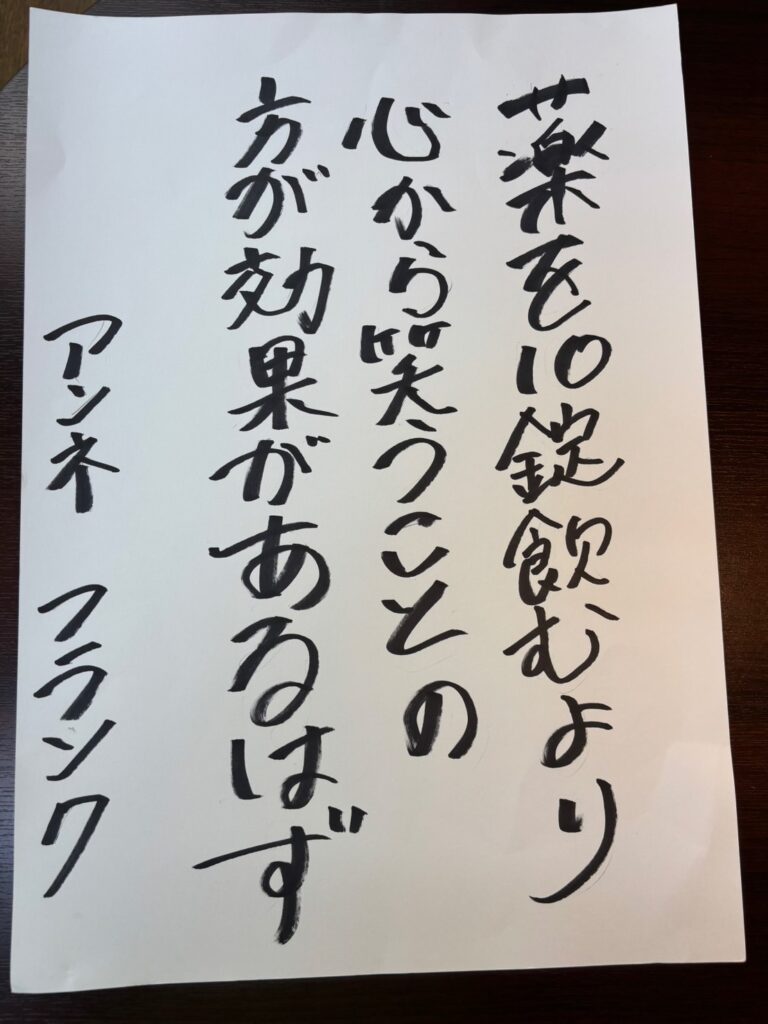 薬を10錠飲むより
心から笑うことの
方が効果があるはず
アンネ フランク